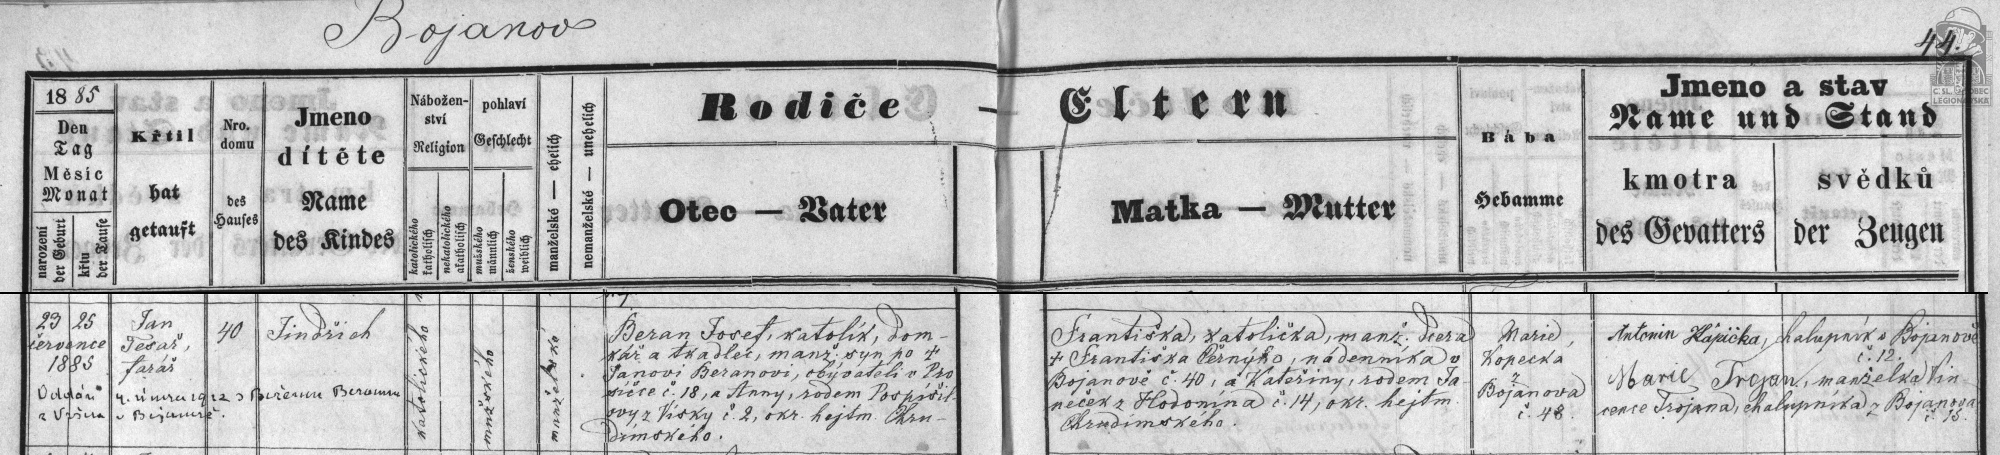 Bojanov
44.
Č.SL. OBEC
LEGIONÁŘSKÁ
1885
Den
Tag
Měsíc
Monat
narození
der Geburt
křtu
der Taufe
Křtil
hat
getauft
Nro.
domu
des
Hauses
Jmeno
dítěte
Name
des Kindes
Nábožen-
ství
Religion
katolického
katholisch
nekatolického
akatholisch
pohlaví
Geschlecht
mužského
männlich
ženského
weiblich
manželské — ehelich
nemanželské — unehelich
Rodiče — Eltern
Otec — Vater
Matka — Mutter
Bába
Hebamme
Jmeno a stav
Name und Stand
kmotra
des Gevatters
svědků
der Zeugen
23 25
července
1885
Jan
Tesař,
farář
40
Jindřich
katolického
mužského
manželské
Beran Josef, katolík, dom-
kář a tkadlec, manž. syn po †
Janovi Beranovi, obyvateli v Pro
síčce č. 18, a Anny, rodem Pospíšil-
ovy z Vísky č. 2, okr. hejtm. Chru-
dimského.
Františka, katolička, manž. dcera
† Františka Černýho, nádenníka v
Bojanově č. 40, a Kateřiny, rodem Ja
neček z Hodonína č. 14, okr. hejtm.
Chrudimského.
Marie
Kopecká
z
Bojanova
č. 48.
Antonín Hápička, chalupník v Bojanově
č. 12.
Marie Trojan, manželka Vin
cence Trojana, chalupníka z Bojanova
Oddán 4. února 1912 s Beranu
v Bojanově.